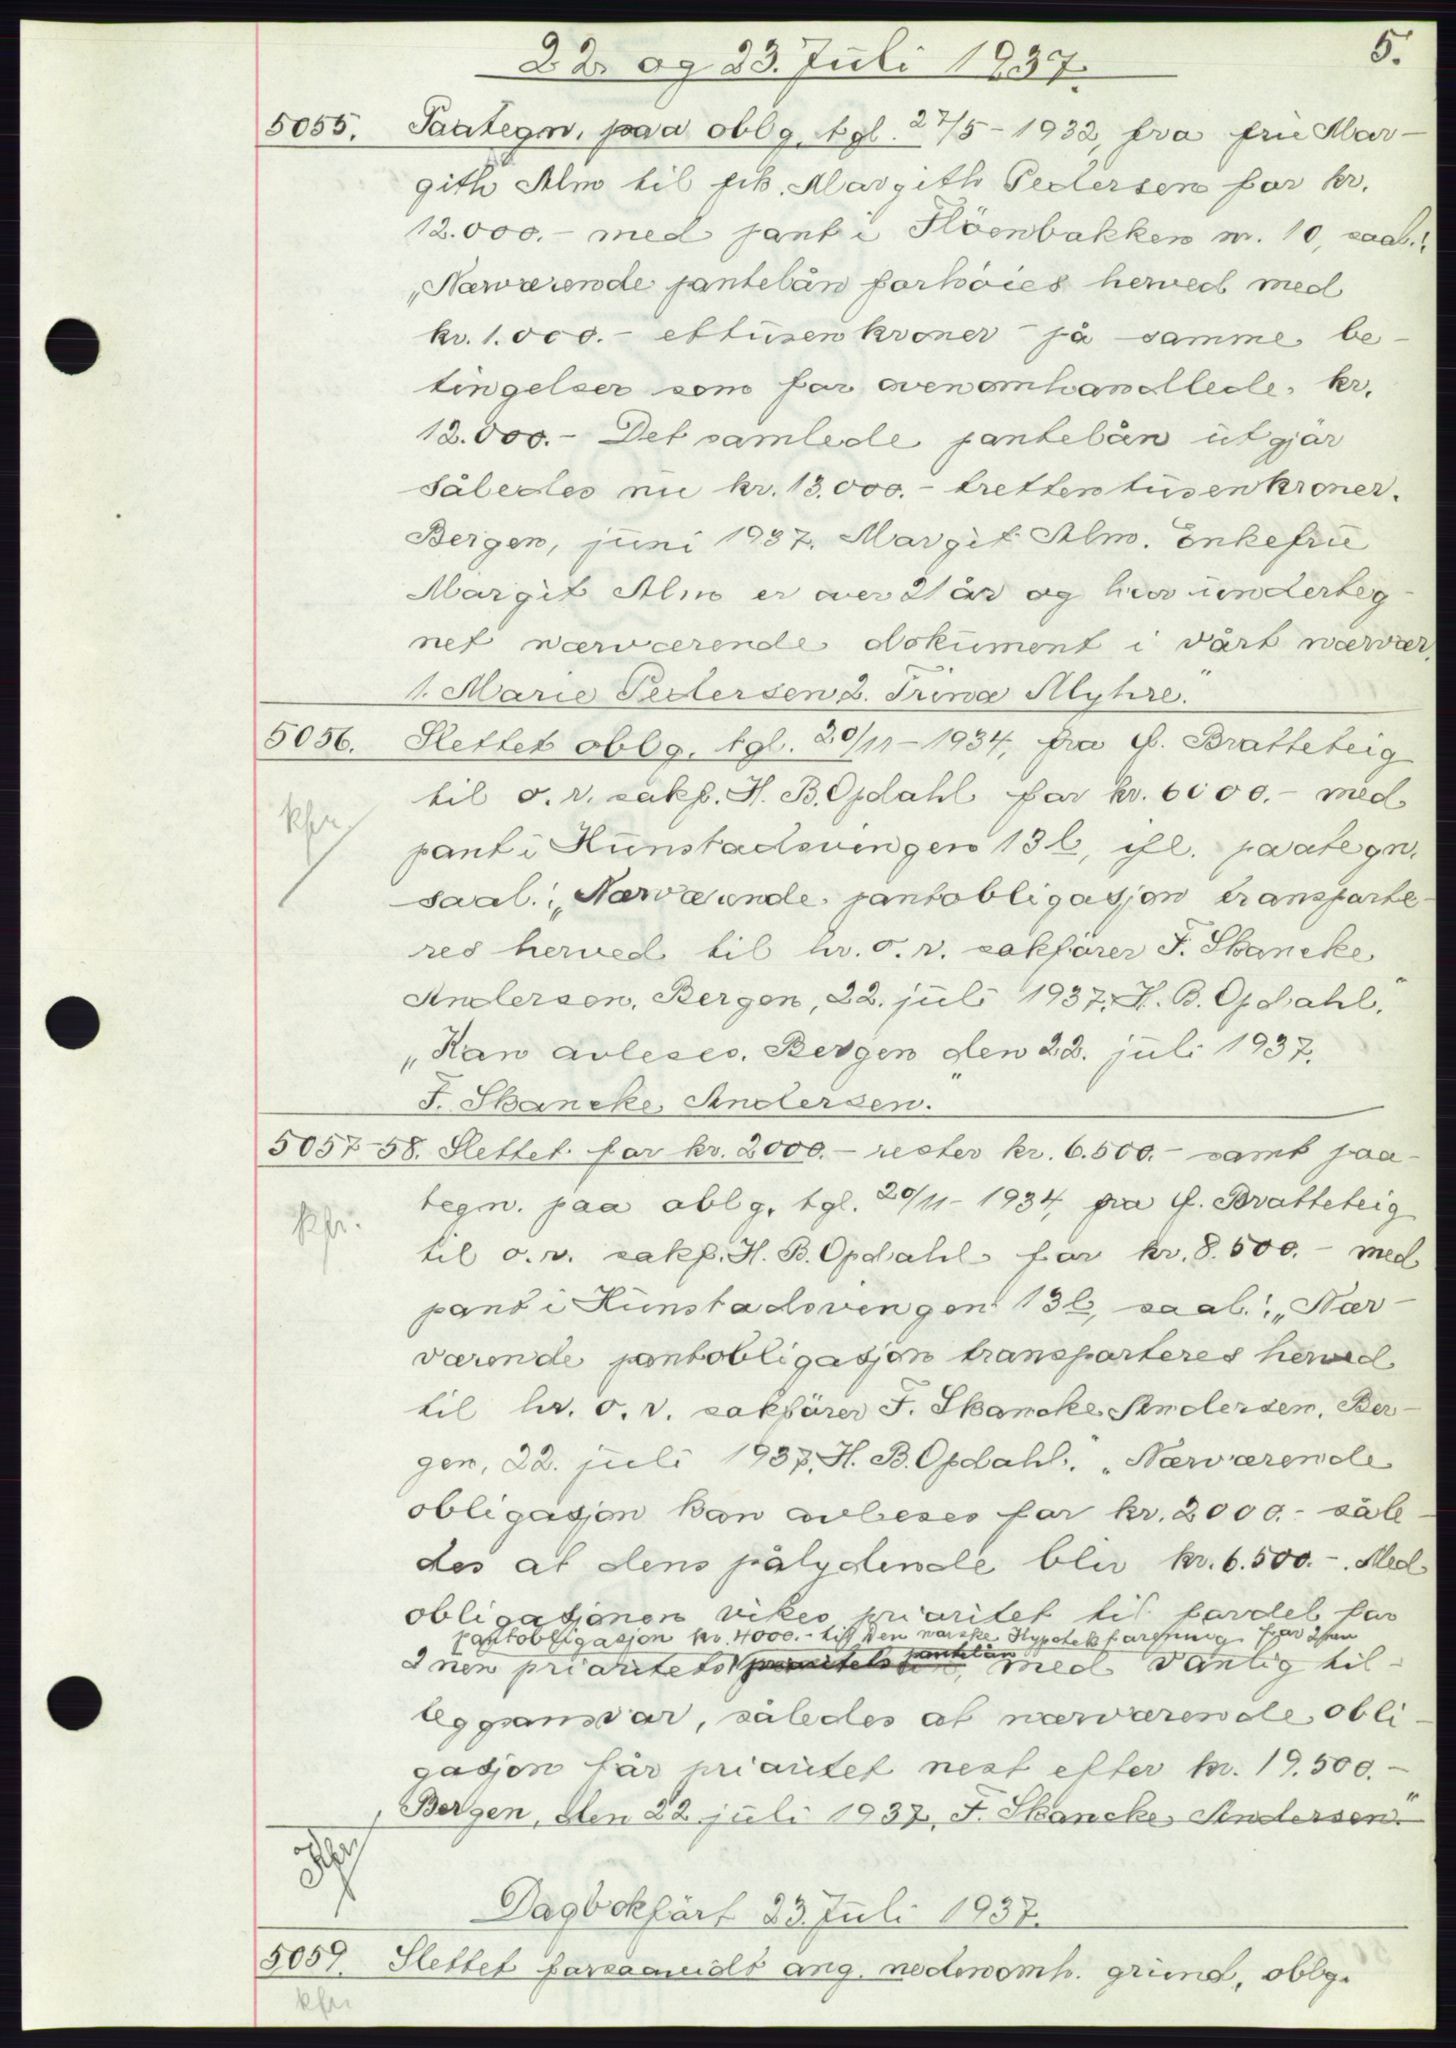 22. og 23. Juli 1937.
5.
5055. Paategn. paa oblg. tgl. 27/5 - 1932, fra frü Mar-
gith Alm til frk. Margith Pedersen for kr.
12.000.- med pant i Flöenbakken nr. 10, saal.:
„Nærværende pantelån forhöies herved med
kr. 1.000.- ettüsen kroner - på samme be-
tingelser som for ovenomhandlede kr.
12.000.- Det samlede pantelån ütgjör
således nü kr. 13.000.- trettentüsenkroner.
Bergen, jüni 1937. Margit Alm. Enkefrü
Margit Alm er over 21 år og har ünderteg-
net nærværende doküment i vårt nærvær.
1. Marie Pedersen 2. Trina Myhre."
5056. Slettet oblg. tgl. 20/11 - 1934, fra Q. Bratteteig
til o. r. sakf. H. B. Opdahl for kr. 6000.- med
kfr.
pant i Künstadsvingen 13 b, ifl. paategn.
saal.: „Nærværende pantobligasjon transporte-
res herved til hr. o. r. sakförer F. Skancke
Andersen, Bergen, 22. jüli 1937. H. B. Opdahl."
„Kan avleses. Bergen den 22. jüli 1937.
F. Skancke Andersen."
5057-58. Slettet for kr. 2000.- rester kr. 6.500.- samt paa-
tegn. paa oblg. tgl. 20/11 - 1934, fra Q. Bratteteig
kfr.
til o. r. sakf. H. B. Opdahl for kr. 8.500.- med
pant i Künstadsvingen 13 b, saal.: „Nær-
værende pantobligasjon transporteres herved
til hr. o. r. sakförer F. Skancke Andersen, Ber-
gen, 22. jüli 1937. H. B. Opdahl." „Nærværende
obligasjon kan avleses for kr. 2000.- såle-
des at dens pålydende blir kr. 6.500.-. Med
obligasjonen vikes prioritet til fordel for
pantobligasjon kr. 4000.- til Den norske Hypotekforening for
2nen prioritets prioritets pantelån, med vanlig til-
leggsansvar, således at nærværende obli-
gasjon får prioritet nest efter kr. 19.500.-
Bergen, den 22. jüli 1937, F. Skancke Andersen."
Kfr
Dagbokfört 23. Jüli 1937.
5059. Slettet forsaavidt ang. nedenomh. gründ, oblg.
kfr